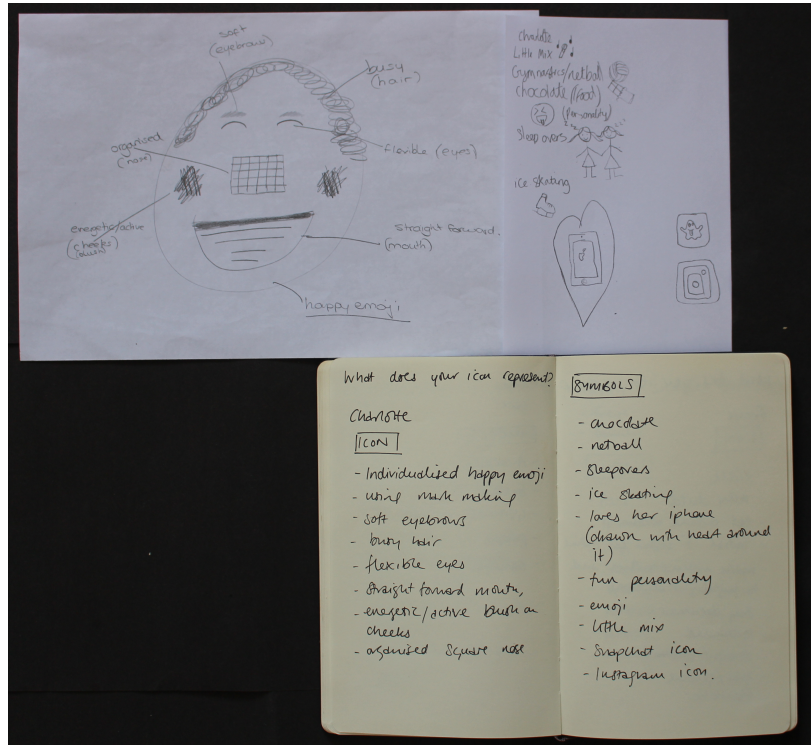 soft
(eyebrows)
busy
(hair)
organised
(nose)
flexible (eyes)
energetic/active
(cheeks)
blush
straight forward.
(mouth)
happy emoji
Charlotte
Little Mix
Gymnastics/netball
chocolate (food)
(personality)
Sleepovers
ice skating
What does your icon represent?
Charlotte
ICON
- Individualised happy emoji
- using mark making
- soft eyebrows
- busy hair
- flexible eyes
- straight forward mouth,
- energetic/active blush on
cheeks
- organised square nose
SYMBOLS
- chocolate
- netball
- sleepovers
- ice skating
- loves her iphone
(drawn with heart around
it)
- fun personality
- emoji
- Little mix
- Snapchat icon
- Instagram icon.